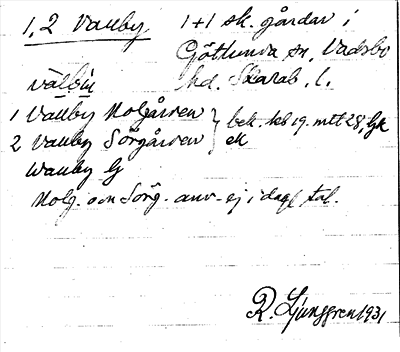 1, 2 Vallby   1+1 sk. gårdar i
Götlunda sn, Vadsbo
hd. Skarab. l.
välbÿ
1 Vallby Nolgården } bek. kb 19. mtt 28, Gk
2 Vallby Sörgården } ek
Wallby G
Nolg. och Sörg. anv. ej i dagl. tal.
R. Ljunggren 1931